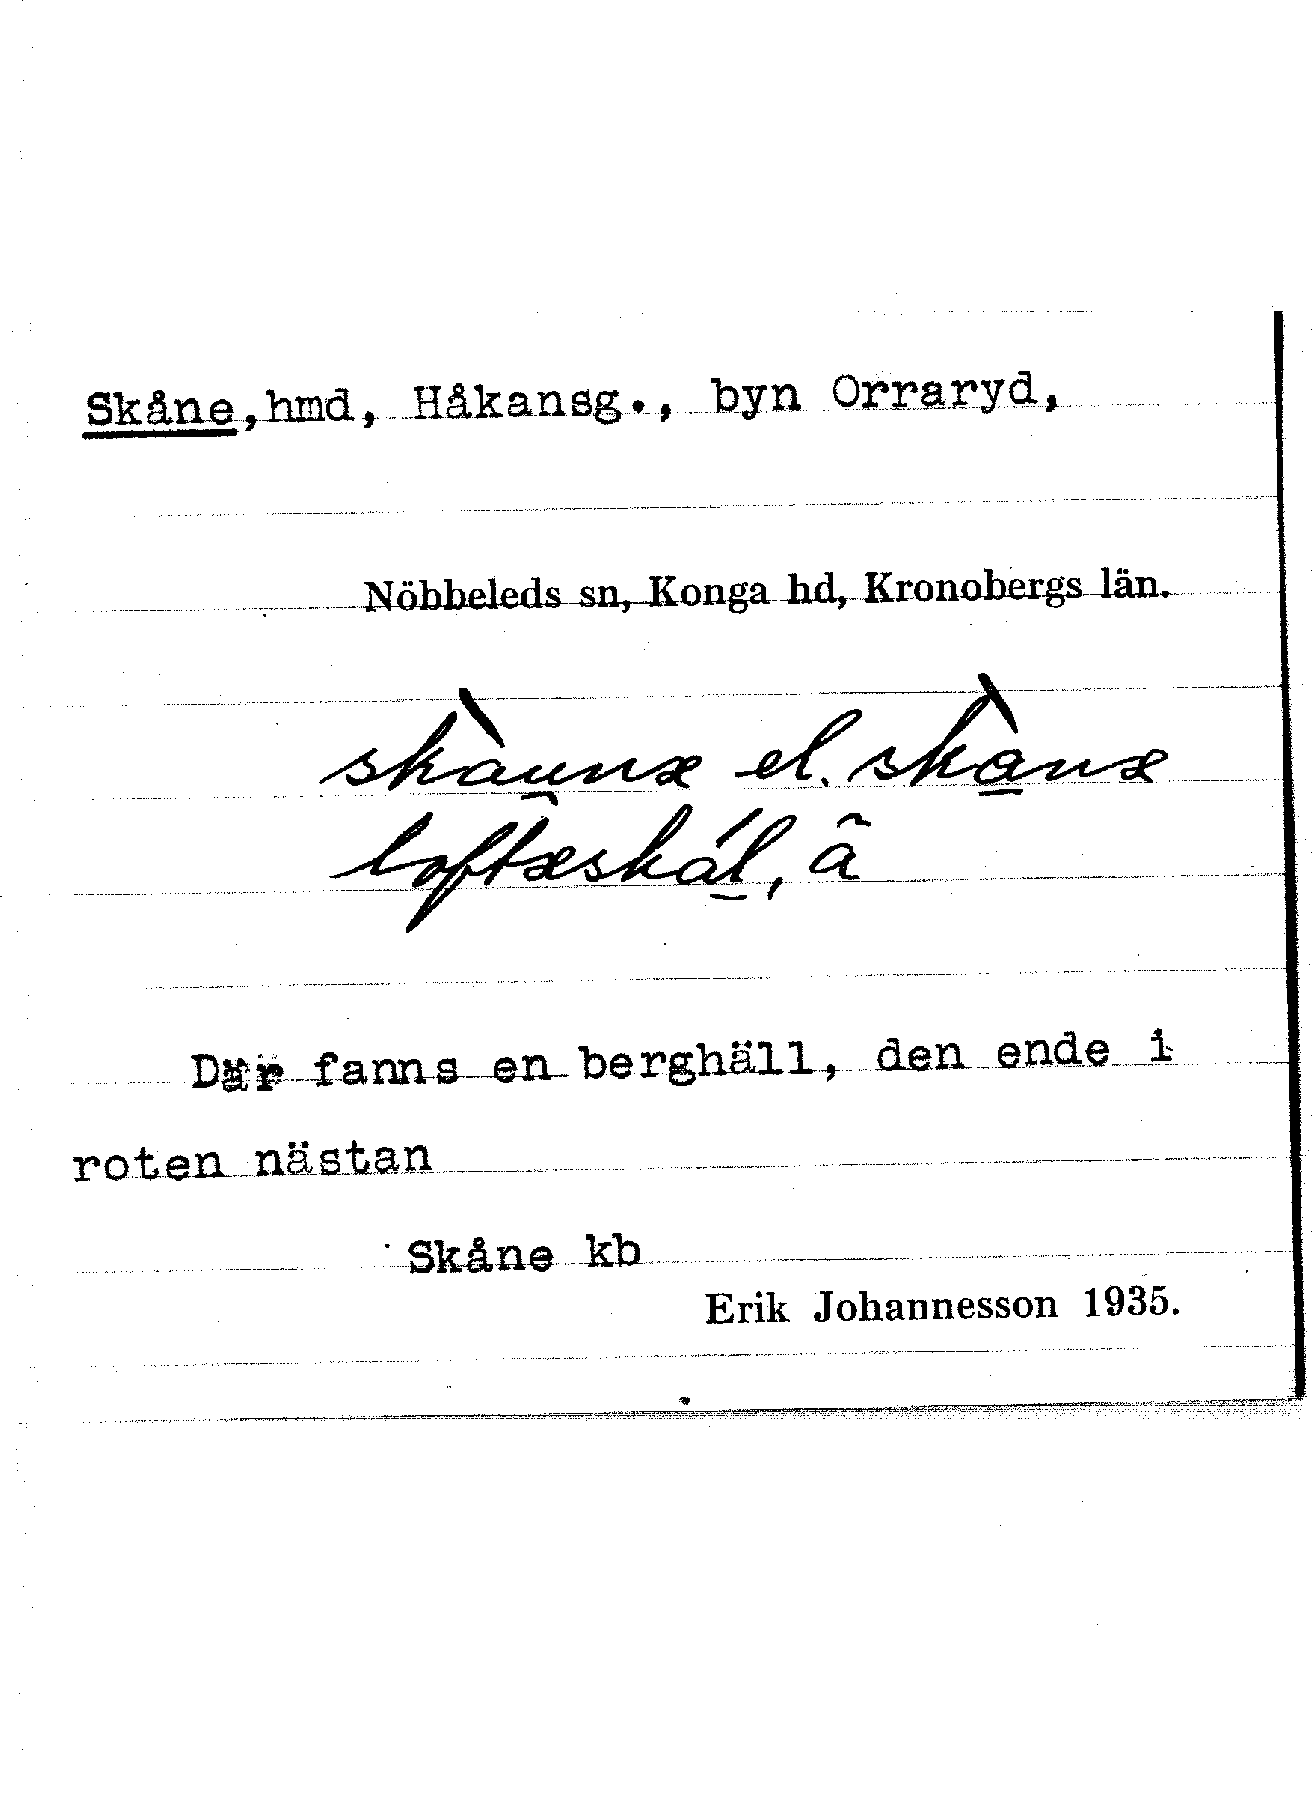 Skåne, hmd, Håkansg., byn Orraryd,
Nöbbeleds sn, Konga hd, Kronobergs län.
skàunæ el. skànæ
loftæskál, ã
Där fanns en berghäll, den ende i
roten nästan
Skåne kb
Erik Johannesson 1935.